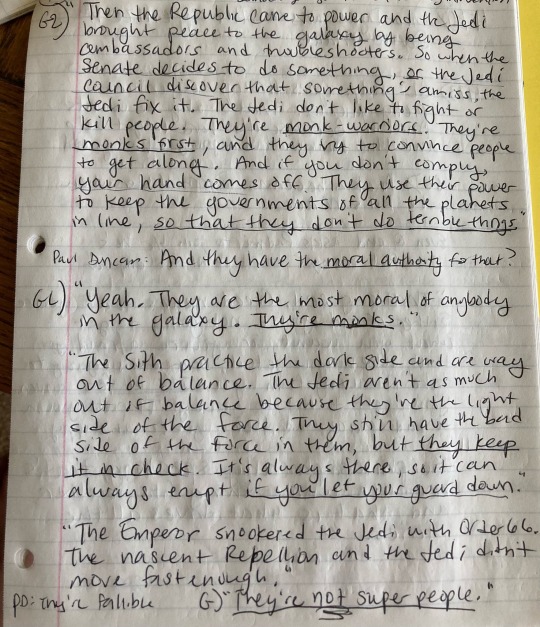 G2) "Then the Republic came to power and the Jedi
brought peace to the galaxy by being
ambassadors and troubleshooters. So when the
Senate decides to do something, or the Jedi
Council discover that something's amiss, the
Jedi fix it. The Jedi don't like to fight or
kill people. They're monk-warriors. They're
monks first, and they try to convince people
to get along. And if you don't comply,
your hand comes off. They use their power
to keep the governments of all the planets
in line, so that they don't do terrible things."
Paul Duncan: And they have the moral authority for that?
GL) "Yeah. They are the most moral of anybody
in the galaxy. They're monks."
"The Sith practice the dark side and are way
out of balance. The Jedi aren't as much
out of balance because they're the light
side of the force. They still have the bad
side of the force in them, but they keep
it in check. It's always there, so it can
always erupt if you let your guard down."
"The Emperor snookered the Jedi with Order 66.
The nascent Rebellion and the Jedi didn't
move fast enough."
PD: They're fallible G) "They're not super people."